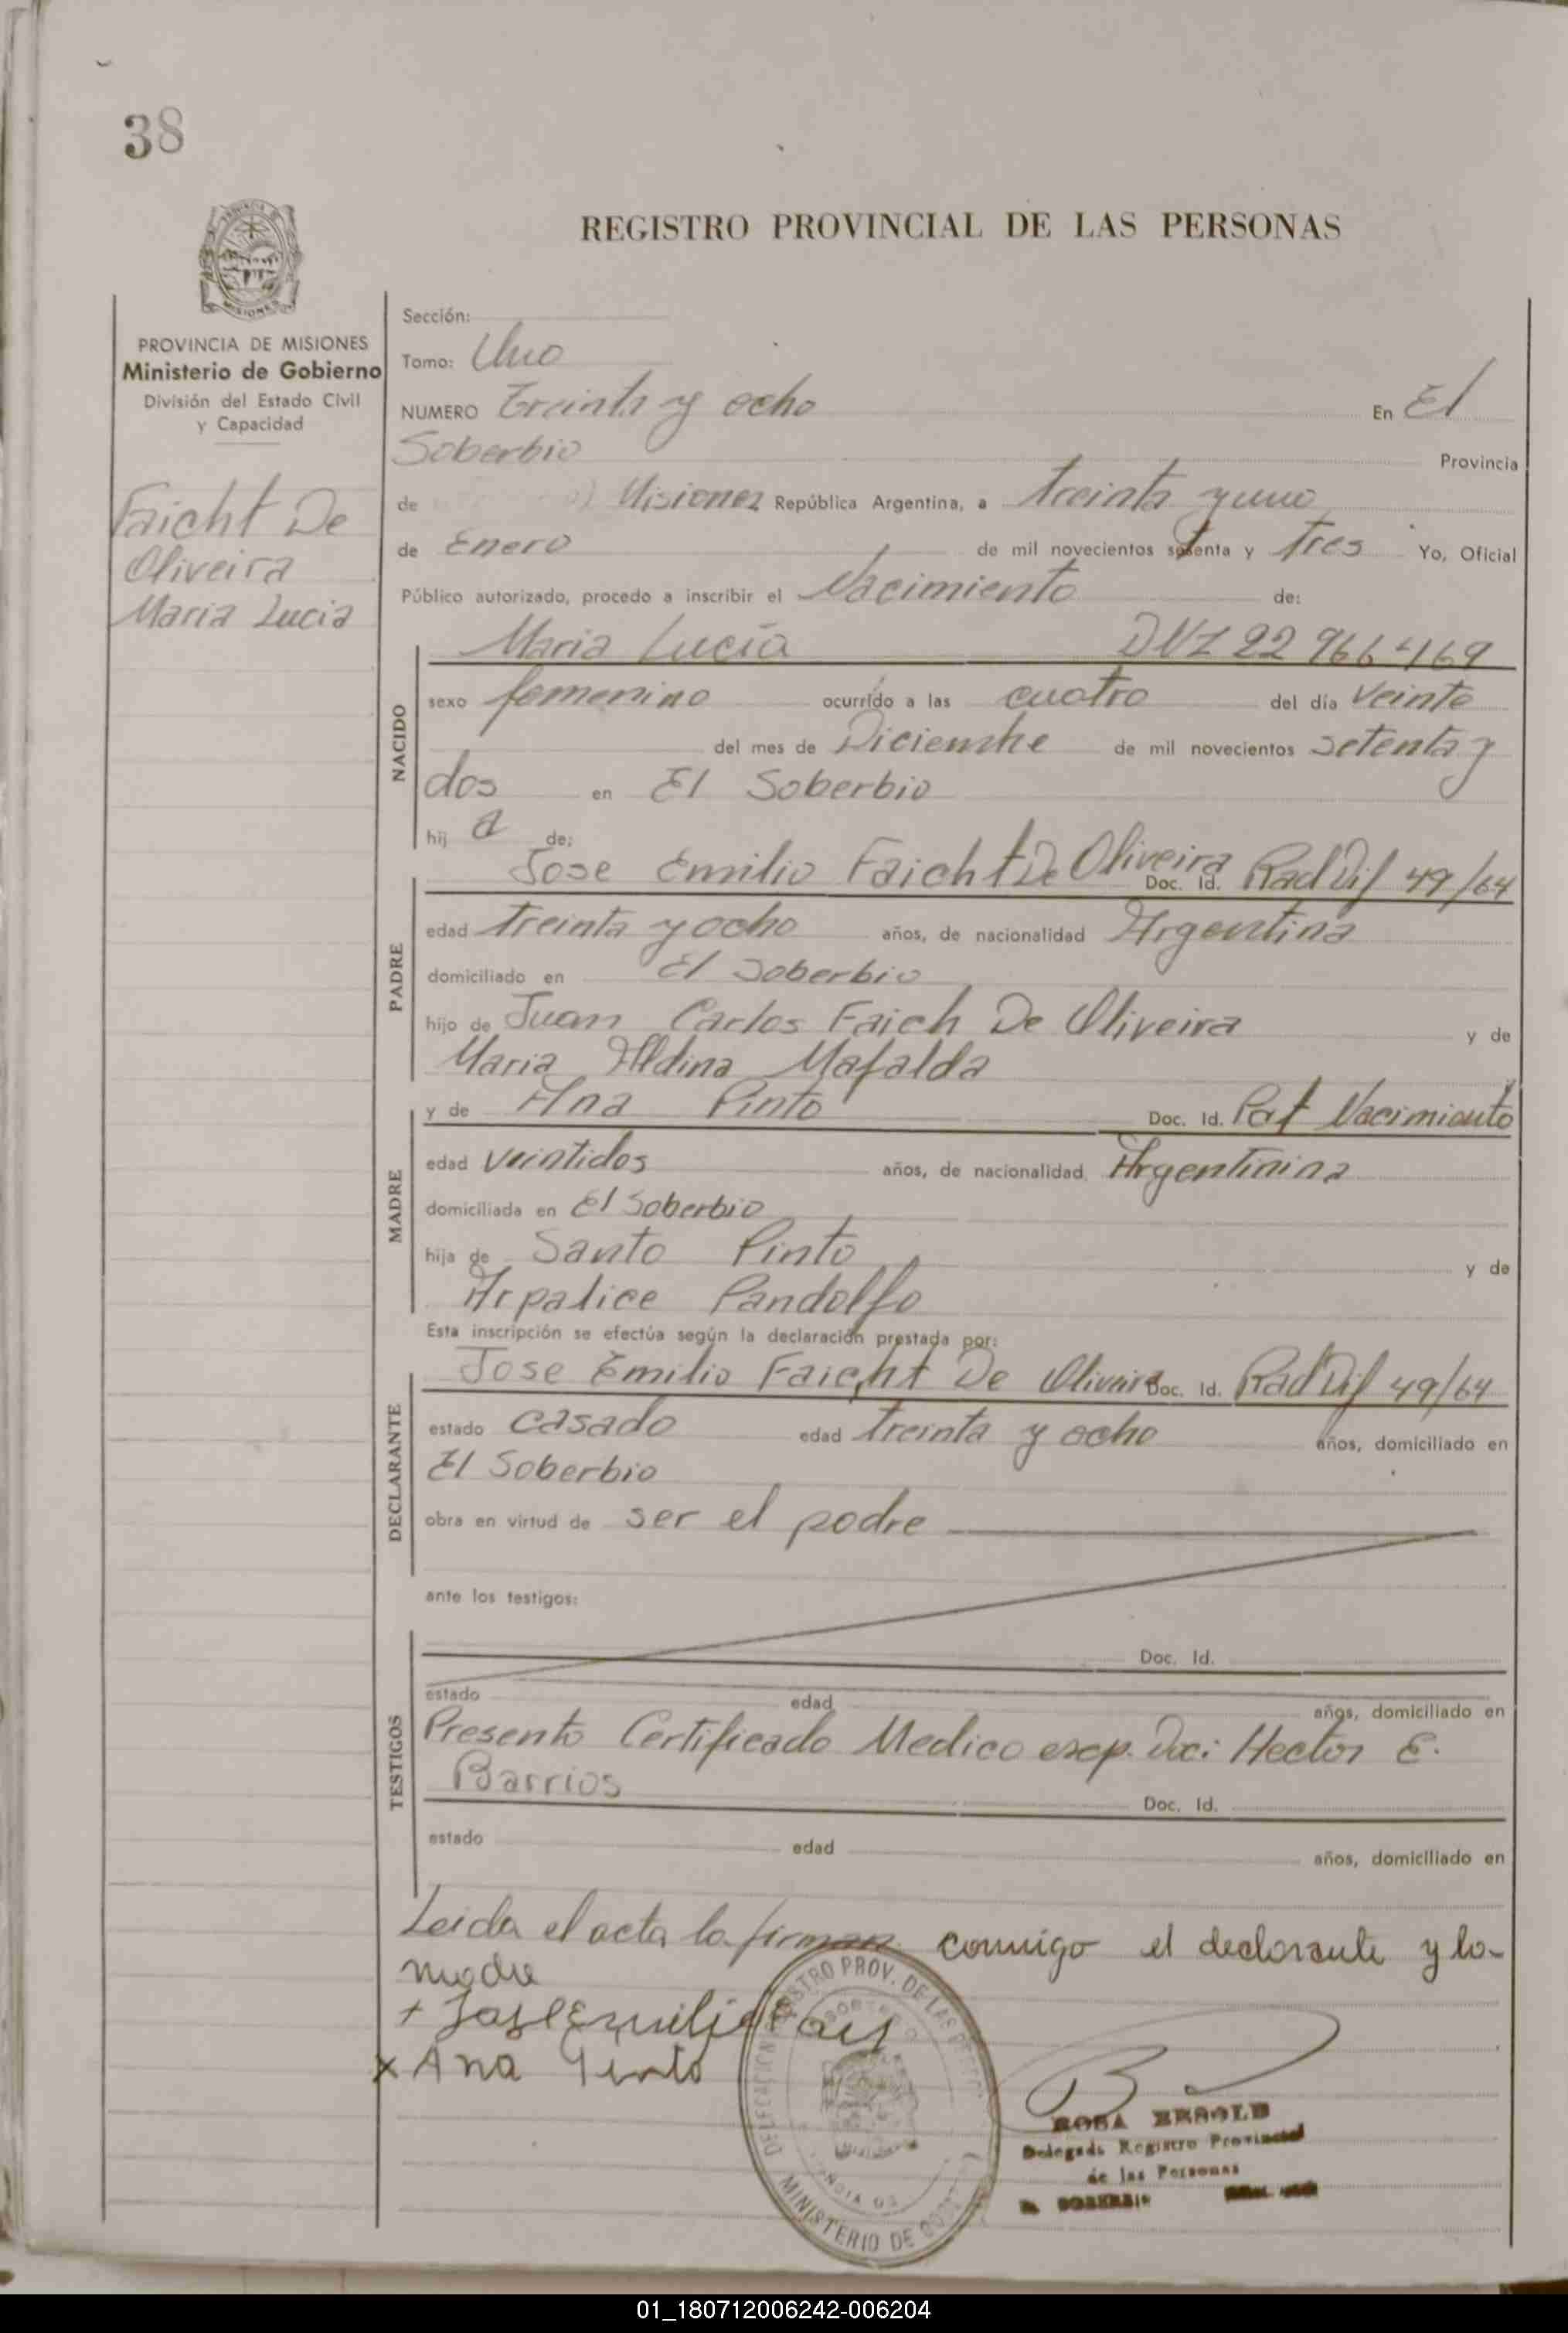 38
PROVINCIA DE MISIONES
Ministerio de Gobierno
División del Estado Civil
y Capacidad
Faicht De
Oliveira
Maria Lucia
REGISTRO PROVINCIAL DE LAS PERSONAS
Sección:
Tomo: Uno
NUMERO Treinta y ocho En El
Soberbio Provincia
de Misiones República Argentina, a treinta y uno
de Enero de mil novecientos setenta y Tres Yo, Oficial
Público autorizado, procedo a inscribir el Nacimiento de:
NACIDO
Maria Lucía DNI 22 966 469
sexo femenino ocurrido a las cuatro del día veinte
del mes de Diciembre de mil novecientos setenta y
dos en El Soberbio
hij a de:
PADRE
Jose Emilio Faicht De Oliveira Doc. Id. Rad Dif 49/64
edad treinta y ocho años, de nacionalidad Argentina
domiciliado en El Soberbio
hijo de Juan Carlos Faich De Oliveira y de
Maria Aldina Mafalda
MADRE
y de Ana Pinto Doc. Id. Pat Nacimiento
edad veintidos años, de nacionalidad Argentinina
domiciliada en El Soberbio
hija de Santo Pinto y de
Arpalice Pandolfo
Esta inscripción se efectúa según la declaración prestada por:
DECLARANTE
Jose Emilio Faicht De Oliveira Doc. Id. Rad Dif 49/64
estado casado edad treinta y ocho años, domiciliado en
El Soberbio
obra en virtud de ser el padre
ante los testigos:
TESTIGOS
Doc. Id.
estado edad años, domiciliado en
Presento Certificado Medico exp. Doc: Hector E.
Barrios
Doc. Id.
estado edad años, domiciliado en
Leida el acta la firman conmigo el declarante y la
madre
+ Jose Emilio
x Ana Pinto
MINISTERIO DE
ROSA
Delegada Registro Provincial
de las Personas
SOBERBIO
01_180712006242-006204